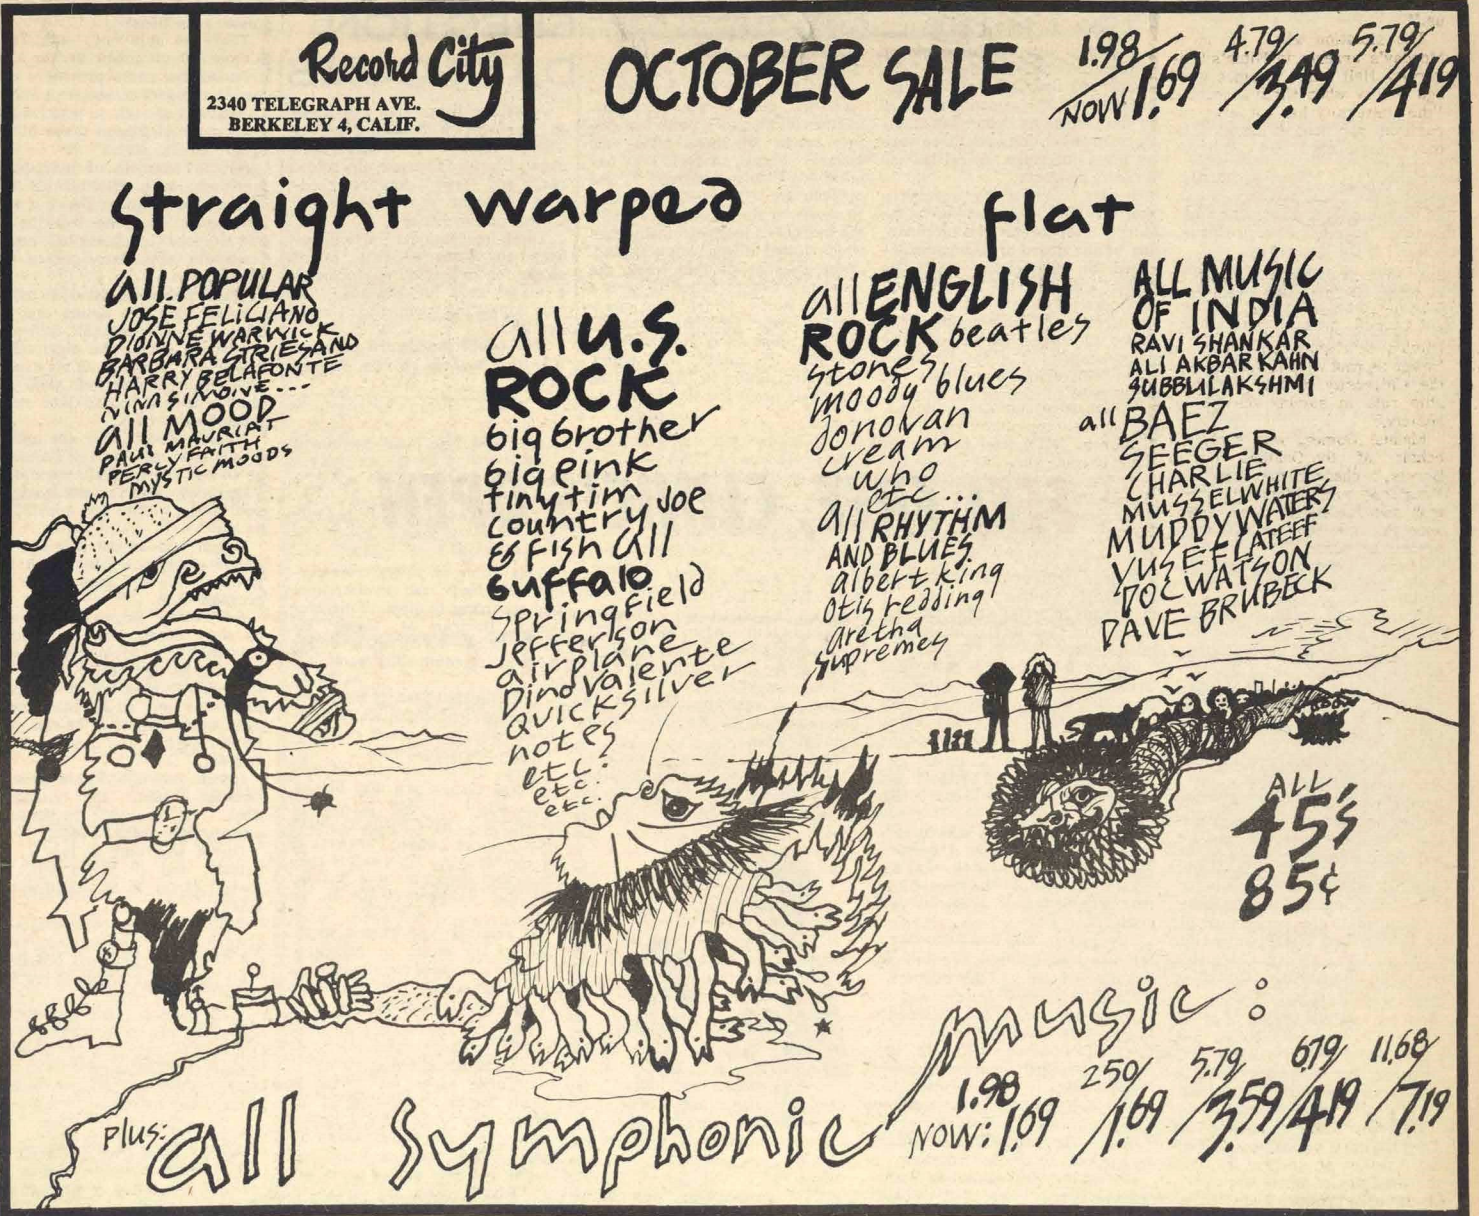 Record City
2340 TELEGRAPH AVE.
BERKELEY 4, CALIF.
OCTOBER SALE
1.98/ 4.79/ 5.79/
NOW 1.69 /3.49 /4.19
straight warped flat
all POPULAR
JOSE FELICIANO
DIONNE WARWICK
BARBARA STRIESAND
HARRY BELAFONTE
NINA SIMONE---
all MOOD
PAUL MAURIAT
PERCY FAITH
MYSTIC MOODS
all U.S.
ROCK
big brother
big pink
tiny tim
country Joe
& fish all
buffalo
springfield
jefferson
airplane
Dino valente
quicksilver
notes
etc.
etc.
etc.
all ENGLISH
ROCK beatles
stones
moody blues
donovan
cream
who
etc...
all RHYTHM
AND BLUES
albert king
otis redding
aretha
supremes
ALL MUSIC
OF INDIA
RAVI SHANKAR
ALI AKBAR KAHN
SUBBULAKSHMI
all BAEZ
SEEGER
CHARLIE
MUSSELWHITE
MUDDY WATERS
YUSEF LATEEF
DOC WATSON
DAVE BRUBECK
ALL
45's
85¢
plus: all symphonic music:
1.98 250/ 5.79/ 679/ 11.68/
NOW: 1.69 /1.69 /3.59 /4.19 /7.19